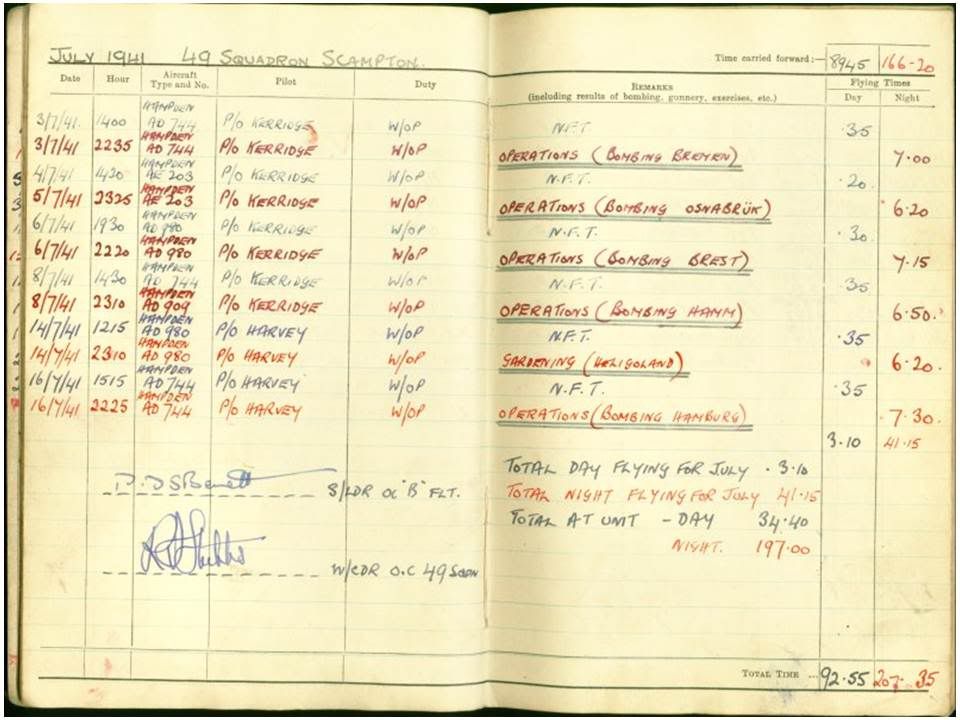 JULY 1941 49 SQUADRON SCAMPTON. Time carried forward:— 8945 166-20
Date Hour Aircraft Type and No. Pilot Duty REMARKS (including results of bombing, gunnery, exercises, etc.) Flying Times Day Night
3/7/41. 1400 HAMPDEN AD 744 P/O KERRIDGE W/OP N.F.T ·35
3/7/41 2235 HAMPDEN AD 744 P/O KERRIDGE W/OP OPERATIONS (BOMBING BREMEN) 7·00
4/7/41 1430 HAMPDEN AE 203 P/O KERRIDGE W/OP N.F.T. ·20.
5/7/41 2325 HAMPDEN AE 203 P/O KERRIDGE W/OP OPERATIONS (BOMBING OSNABRÜK) 6·20
6/7/41 1930 HAMPDEN AD 980 P/O KERRIDGE W/OP N.F.T. ·30.
6/7/41 2220 HAMPDEN AD 980 P/O KERRIDGE W/OP OPERATIONS (BOMBING BREST) 7·15
8/7/41 1430 HAMPDEN AD 744 P/O KERRIDGE W/OP N.F.T. ·35
8/7/41 2310 HAMPDEN AD 909 P/O KERRIDGE W/OP OPERATIONS (BOMBING HAMM) 6·50.
14/7/41 1215 HAMPDEN AD 980 P/O HARVEY W/OP N.F.T. ·35
14/7/41 2310 HAMPDEN AD 980 P/O HARVEY W/OP GARDENING (HELIGOLAND) 6·20.
16/7/41 1515 HAMPDEN AD 744 P/O HARVEY W/OP N.F.T. ·35
16/7/41 2225 HAMPDEN AD 744 P/O HARVEY W/OP OPERATIONS (BOMBING HAMBURG) 7·30.
3·10 41·15
TOTAL DAY FLYING FOR JULY · 3·10
S/LDR OC "B" FLT. TOTAL NIGHT FLYING FOR JULY 41·15
TOTAL AT UNIT - DAY 34·40
NIGHT. 197·00
W/CDR O.C 49 SQDN
TOTAL TIME ... 92·55 207· 35